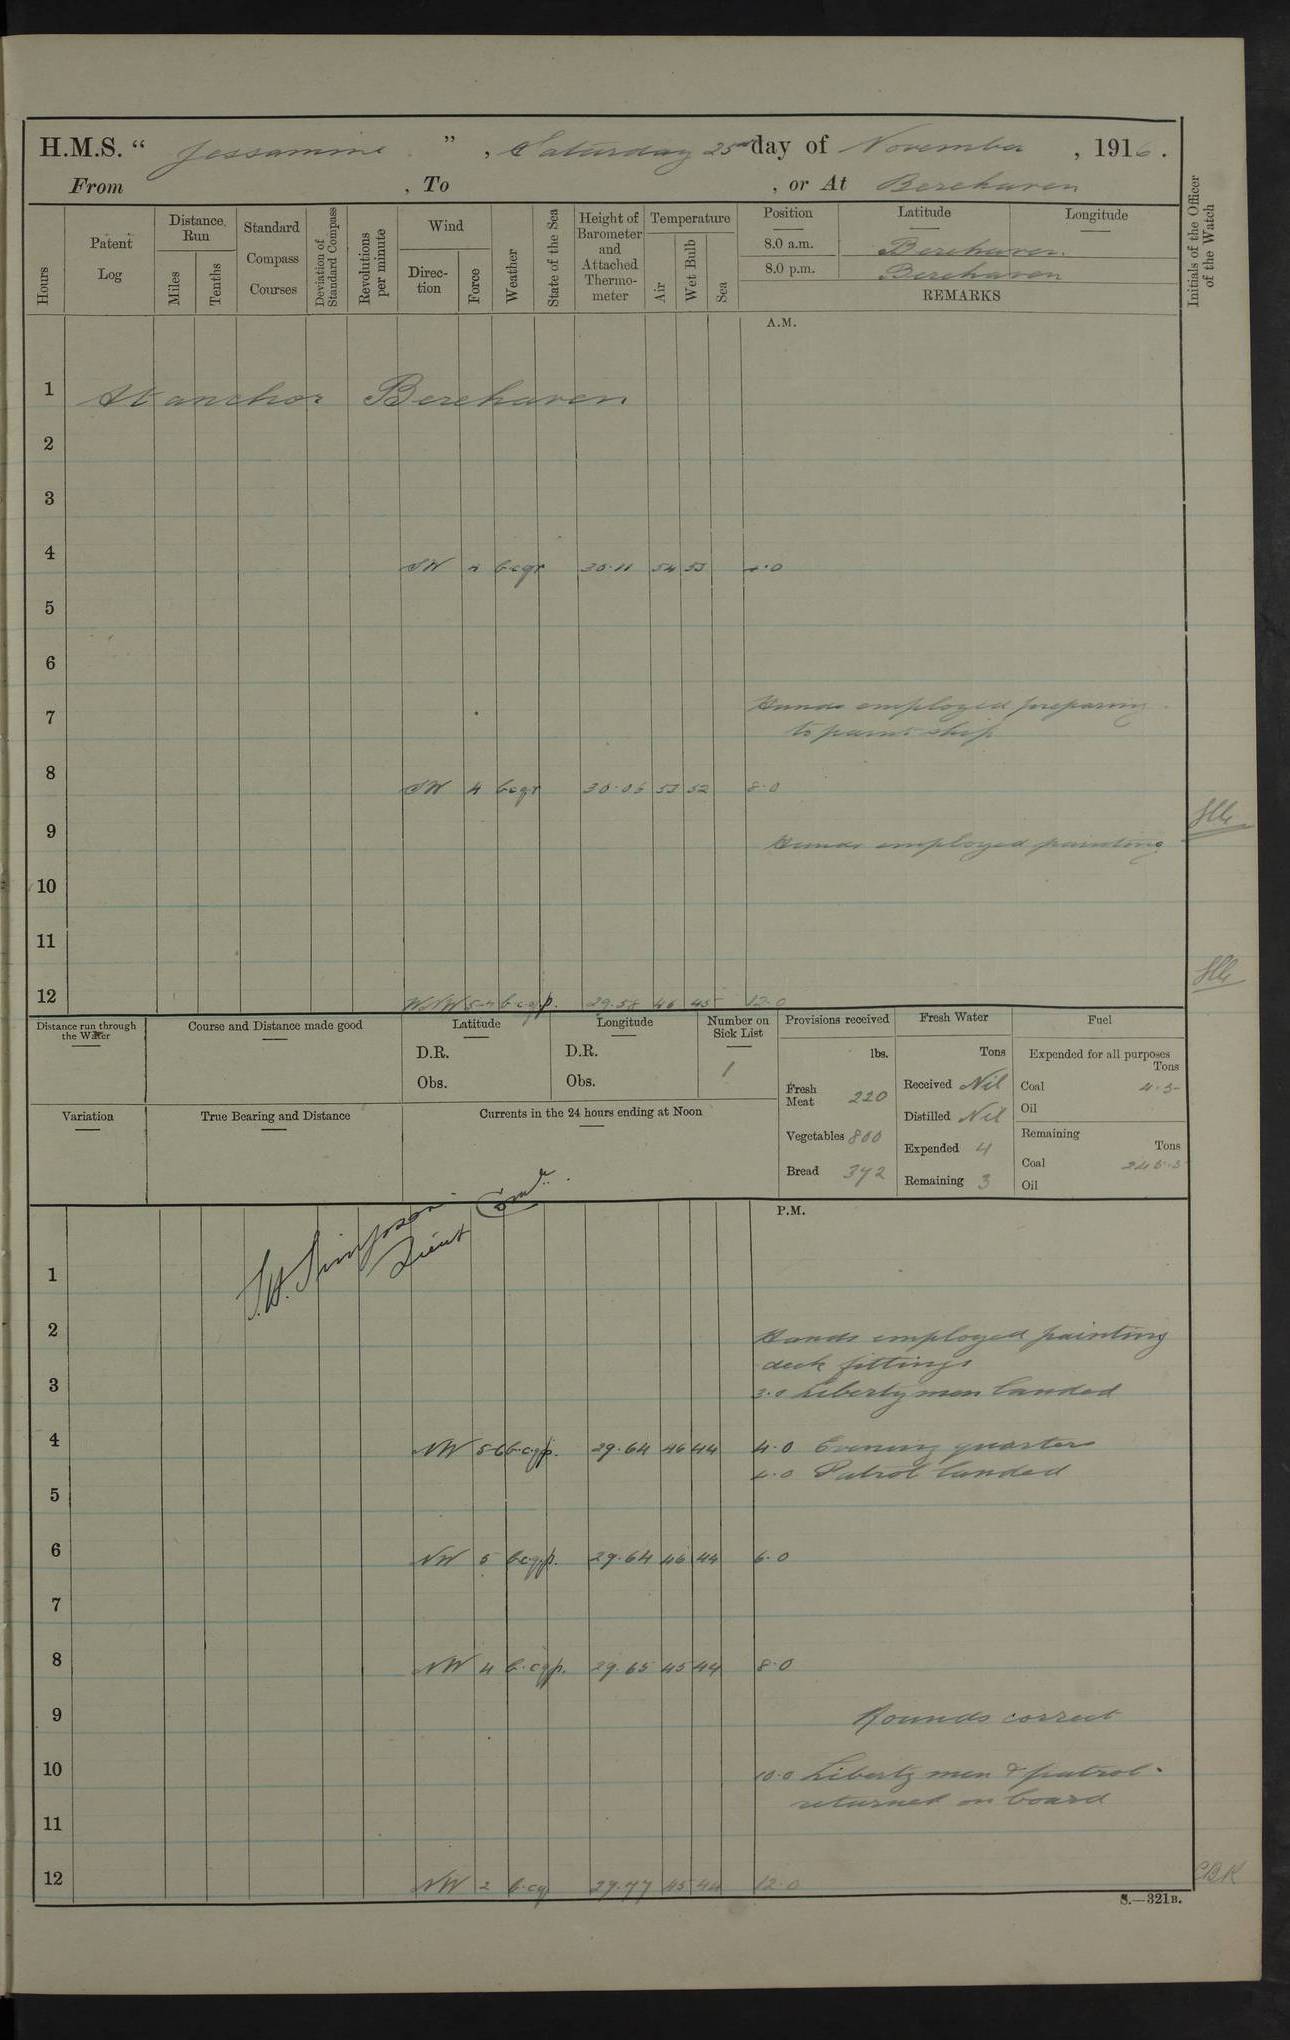 H.M.S. “ Jessamine ” , Saturday 25th day of November , 1916 .
From , To , or At Berehaven
Hours
Patent Log
Distance Run
Miles
Tenths
Standard Compass Courses
Deviation of Standard Compass
Revolutions per minute
Wind
Direc- tion
Force
Weather
State of the Sea
Height of Barometer and Attached Thermo- meter
Temperature
Air
Wet Bulb
Sea
Position Latitude Longitude
8.0 a.m. Berehaven.
8.0 p.m. Berehaven
REMARKS
Initials of the Officer of the Watch
A.M.
1 At anchor Berehaven
2
3
4 SW bcqr 30.11 54 53 4.0
5
6
7 Hands employed preparing
to paint ship
8 SW 4 bcqr 30.05 53 52 8.0
9 Hands employed painting
10
11
12 WNW b.c.q.p. 29.58 46 45 12.0
Distance run through the Water
Course and Distance made good
Latitude
D.R.
Obs.
Longitude
D.R.
Obs.
Number on Sick List
1
Provisions received
lbs.
Fresh Meat 220
Vegetables 800
Bread 392
Fresh Water
Tons
Received Nil
Distilled Nil
Expended 4
Remaining 3
Fuel
Expended for all purposes
Tons
Coal 4.5
Oil
Remaining
Tons
Coal 245.5
Oil
Variation
True Bearing and Distance
Currents in the 24 hours ending at Noon
S.H. Simpson
Lieut Comdr.
P.M.
1
2 Hands employed painting
deck fittings
3 3.0 Liberty men landed
4 NW 5-6 b.c.q.p. 29.64 46 44 4.0 Evening quarters
4.0 Patrol landed
5
6 NW 5 b.c.q.p. 29.64 46 44 6.0
7
8 NW 4 b.c.q.p. 29.65 45 44 8.0
9 Rounds correct
10 10.0 Liberty men & patrol
returned on board
11
12 NW 2 b.c.q 29.77 45 44 12.0
CBK
S.—321B.